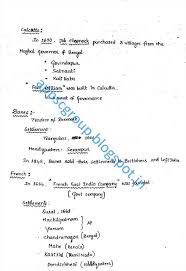 Calcutta :
In 1690, Job Charnock purchased 3 villages from the
Mughal Governor of Bengal
Govindapur
Sutanuti
Kalikata
"Fort William" was built in Calcutta.
Seat of Governance
Danes :
Traders of Denmark
Settlement :
Tranquebar,
Headquarters: Serampur
In 1845, Danes sold their settlements to Britishers and left India
French :
In 1664, "French East India Company was formed
(Govt company)
Settlements :
Surat, 1668
Machilipatnam
Yanam
Chandranagar (Bengal)
Mahe (Kerala)
Karaikal (Tamil Nadu)
Pondicherry